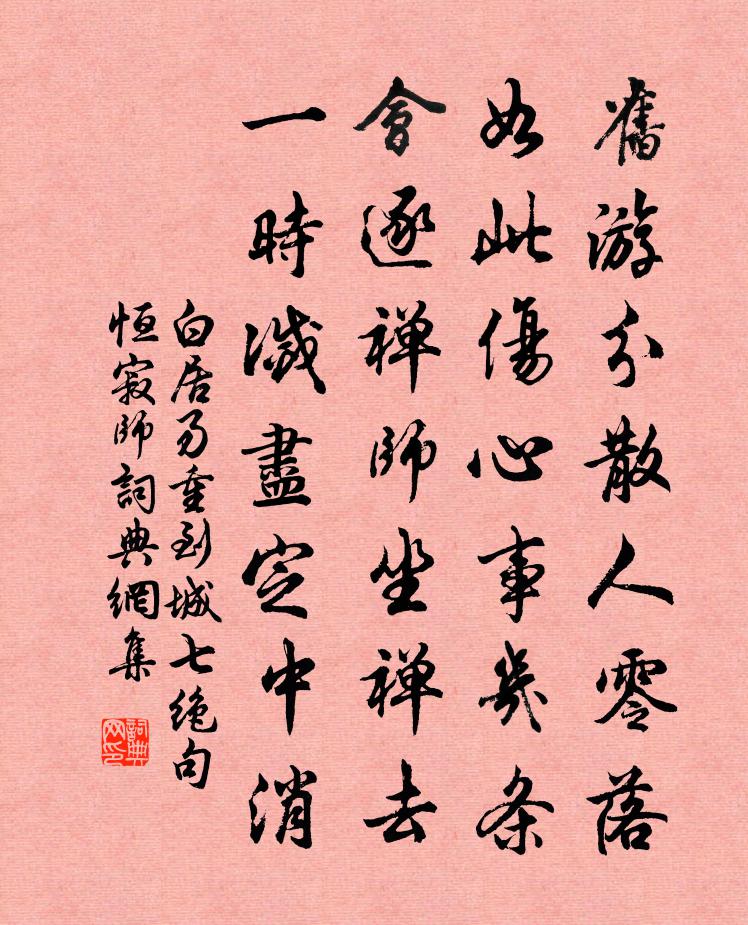 舊游分散人零落
如此傷心事幾条
會逐禅師坐禅去
一時滅盡定中消
白居易重到城七绝句
恒寂師詞典網集
詞典网印